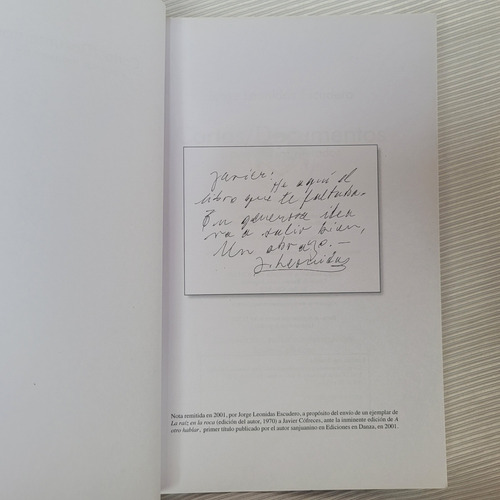 Javier:
He aquí el
libro que te faltaba.
En generosa
salió bien,
Un abrazo.—
J. Leonidas
Nota remitida en 2001, por Jorge Leonidas Escudero, a propósito del envío de un ejemplar de
La raíz en la roca (edición del autor, 1970) a Javier Cófreces, ante la inminente edición de A
otro hablar, primer título publicado por el autor sanjuanino en Ediciones en Danza, en 2001.